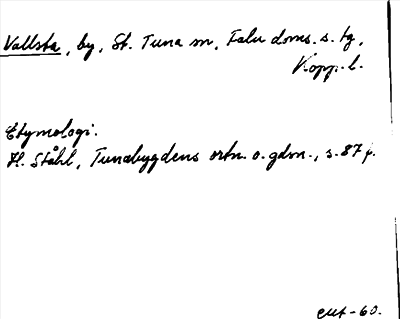 Vallsta, by, St. Tuna sn, Falu doms. s. tg,
Kopp. l.
Etymologi.
H. Ståhl, Tunabygdens ortn. o. gdsn., s. 87 f.